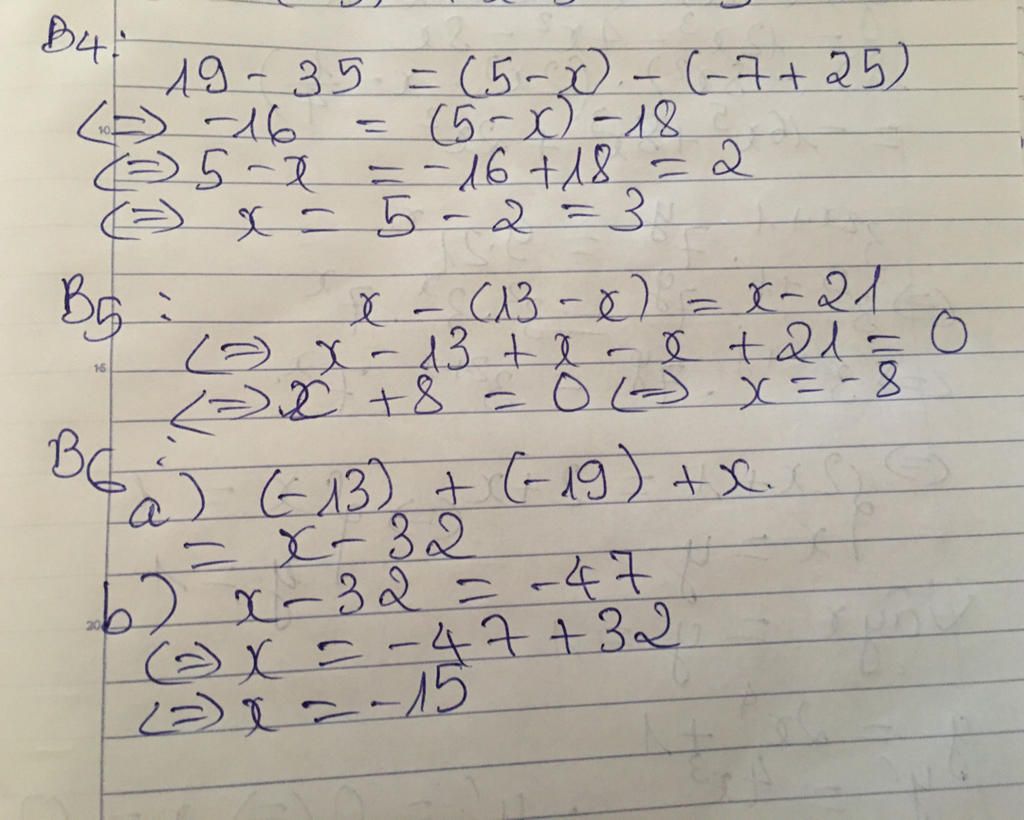 B4:
19 - 35 = (5 - x) - (-7 + 25)
<=> -16 = (5 - x) - 18
<=> 5 - x = -16 + 18 = 2
<=> x = 5 - 2 = 3
B5: x - (13 - x) = x - 21
<=> x - 13 + x - x + 21 = 0
<=> x + 8 = 0 <=> x = -8
B6:
a) (-13) + (-19) + x.
= x - 32
b) x - 32 = -47
<=> x = -47 + 32
<=> x = -15